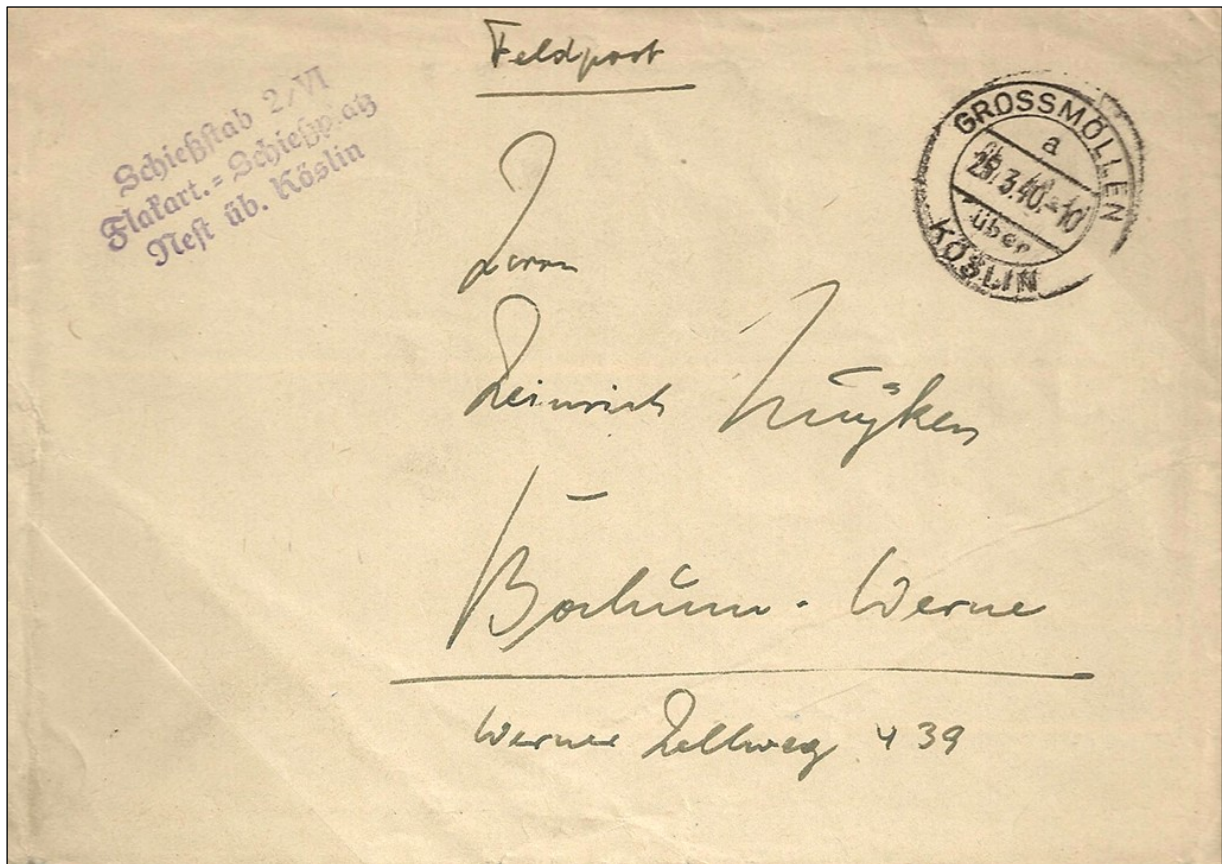 Feldpost
Schießstab 2/VI
Flakart.=Schießplatz
Nest üb. Köslin
GROSSMÖLLEN
a
3.40.-10
über
KÖSLIN
Herrn
Heinrich
Bochum-Werne
Werner Hellweg 439